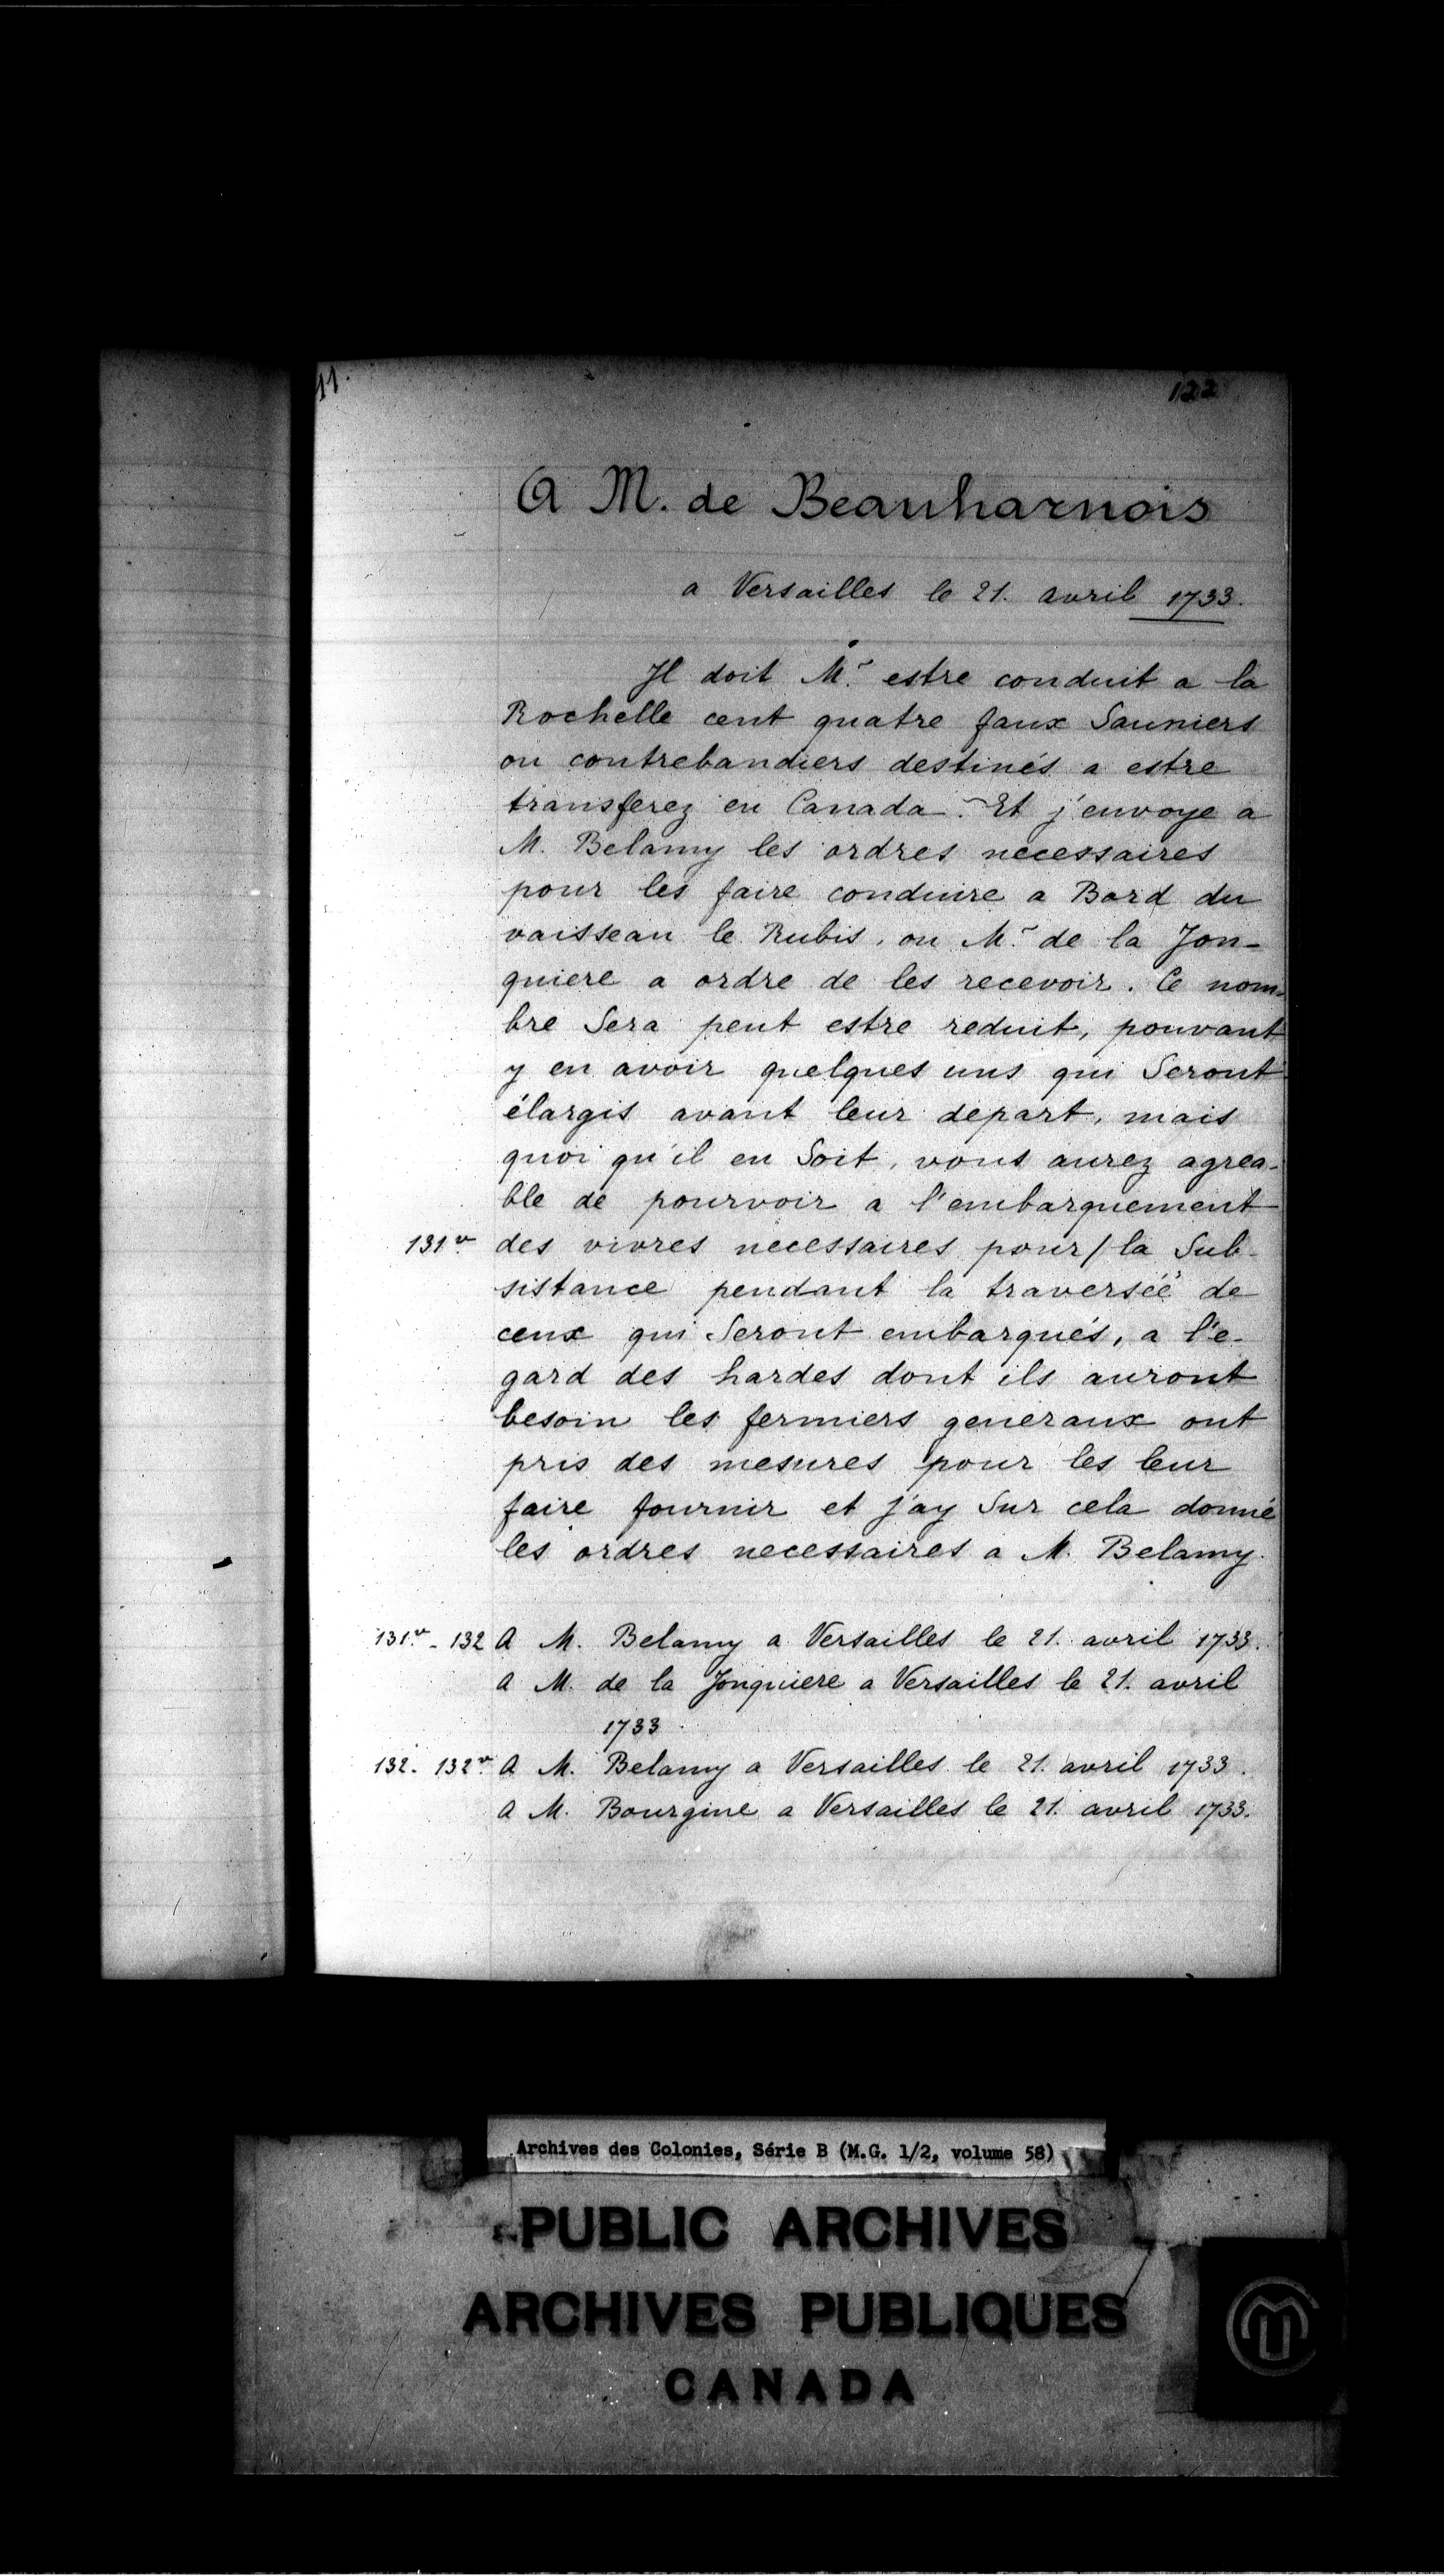 11.
122
A M. de Beauharnois
a Versailles le 21. avril 1733.
Il doit Mr. estre conduit a la
Rochelle cent quatre faux Sauniers
ou contrebandiers destinés a estre
transferez en Canada. Et j'envoye a
M. Belamy les ordres necessaires
pour les faire conduire a Bord du
vaisseau le Rubis, ou Mr. de la Jon-
quiere a ordre de les recevoir. Ce nom-
bre Sera peut estre reduit, pouvant
y en avoir quelques uns qui Seront
élargis avant leur depart, mais
quoi qu'il en Soit, vous aurez agrea-
ble de pourvoir a l'embarquement
131v. des vivres necessaires pour/la Sub-
sistance pendant la traversée de
ceux qui Seront embarqués, a l'e-
gard des hardes dont ils auront
besoin les fermiers generaux ont
pris des mesures pour les leur
faire fournir et j'ay Sur cela donné
les ordres necessaires a M. Belamy.
131v. - 132 A M. Belamy a Versailles le 21. avril 1733.
A M. de la Jonquiere a Versailles le 21. avril
1733.
132. 132v. A M. Belamy a Versailles le 21. avril 1733.
A M. Bourgine a Versailles le 21. avril 1733.
Archives des Colonies, Série B (M.G. 1/2, volume 58)
PUBLIC ARCHIVES
ARCHIVES PUBLIQUES
CANADA